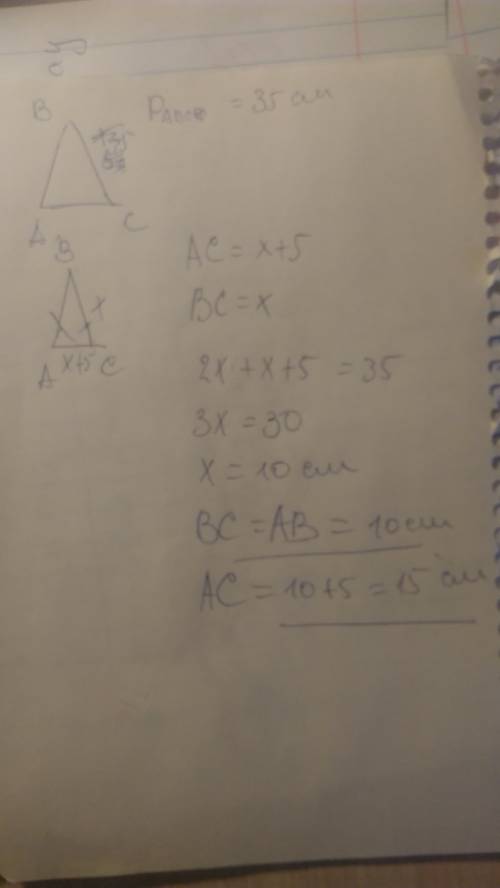 B
P = 35 см
A
C
B
x
A x+5 C
AC = x+5
BC = x
2x + x + 5 = 35
3x = 30
x = 10 см
BC = AB = 10 см
AC = 10+5 = 15 см